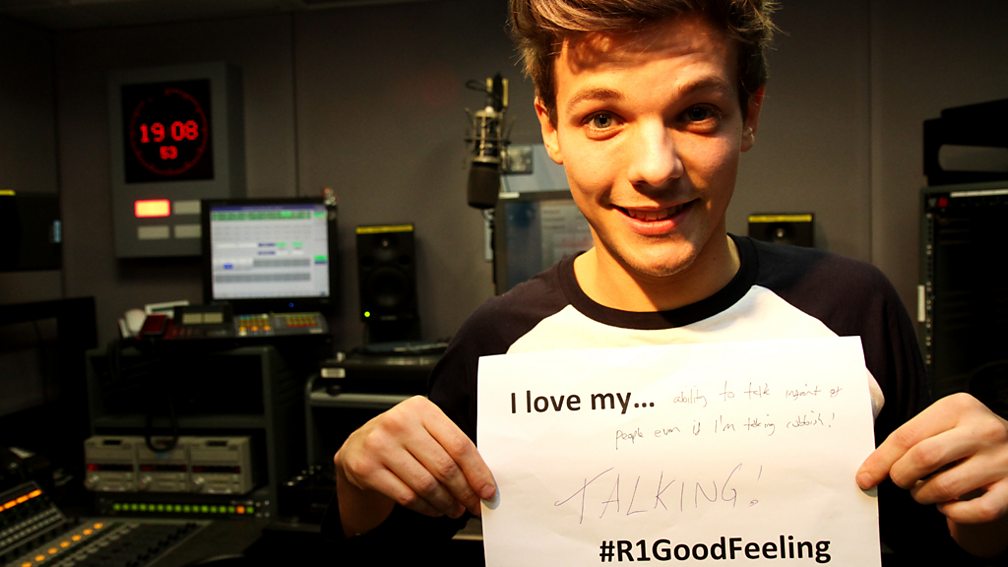 19 08
53
I love my... ability to talk infront of
people even if I'm talking rubbish!
TALKING!
#R1GoodFeeling